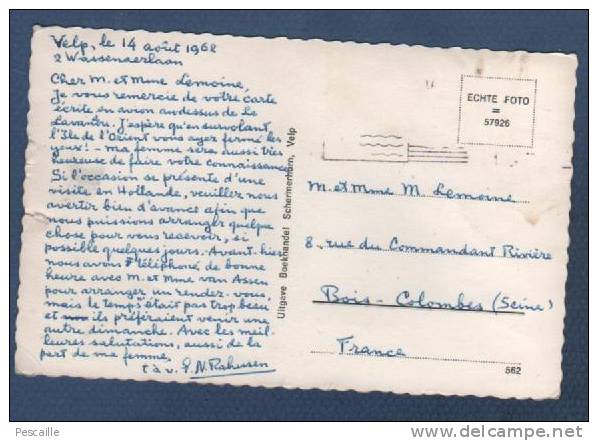 Velp, le 14 août 1968
2 Wassenaerlaan
Cher M. et Mme Lemoine,
Je vous remercie de votre carte
écrite en avion audessus de Le
Lavantou. J'espère qu'en survolant
l'Ile de l'Orient vous ayez fermé les
yeux! - ma femme sera aussi très
heureuse de faire votre connaissance.
Si l'occasion se présente d'une
visite en Hollande, veuillez nous
avertir bien d'avance afin que
nous puissions arranger quelque
chose pour vous recevoir, si
possible quelques jours. Avant-hier
nous avons téléphoné, de bonne
heure avec M. et Mme van Assen
pour arranger un rendez-vous,
mais le temps était pas trop beau
et ils préféraient venir une
autre dimanche. Avec les meil-
leures salutations, aussi de la
part de ma femme,
t à v. G. N. Rahusen
Uitgave Boekhandel Schermerhorn, Velp
ECHTE FOTO
=
57926
M. et Mme M. Lemoine
8, rue du Commandant Rivière
Bois-Colombes (Seine)
France
562
Pescaille
www.delcampe.net